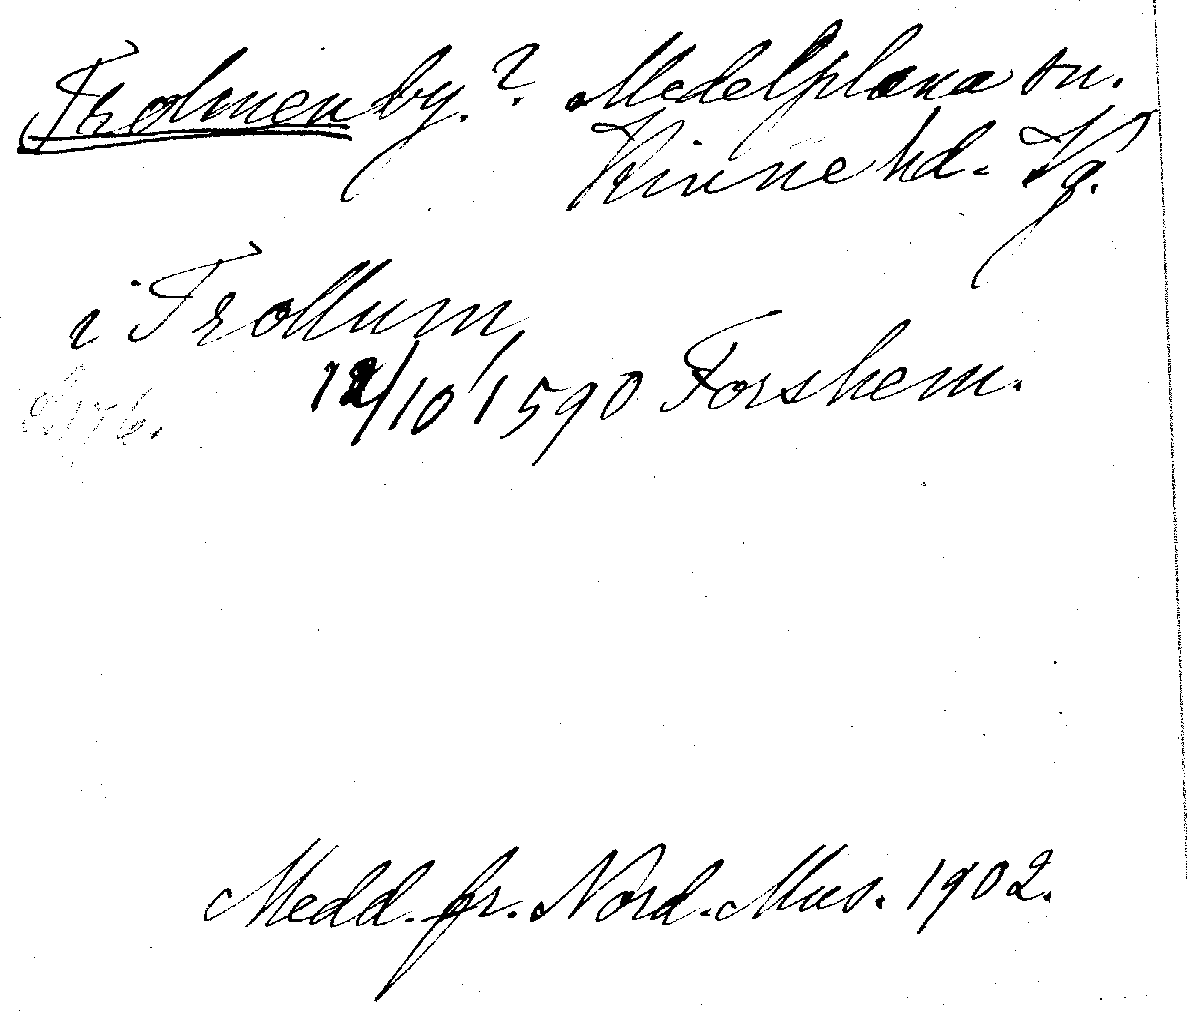 Trolmen by.? Medelplana sn.
Kinne hd. Vg.
i Trollum,
12/10 1590 Forshem.
S. 176.
Medd. fr. Nord. Mus. 1902.